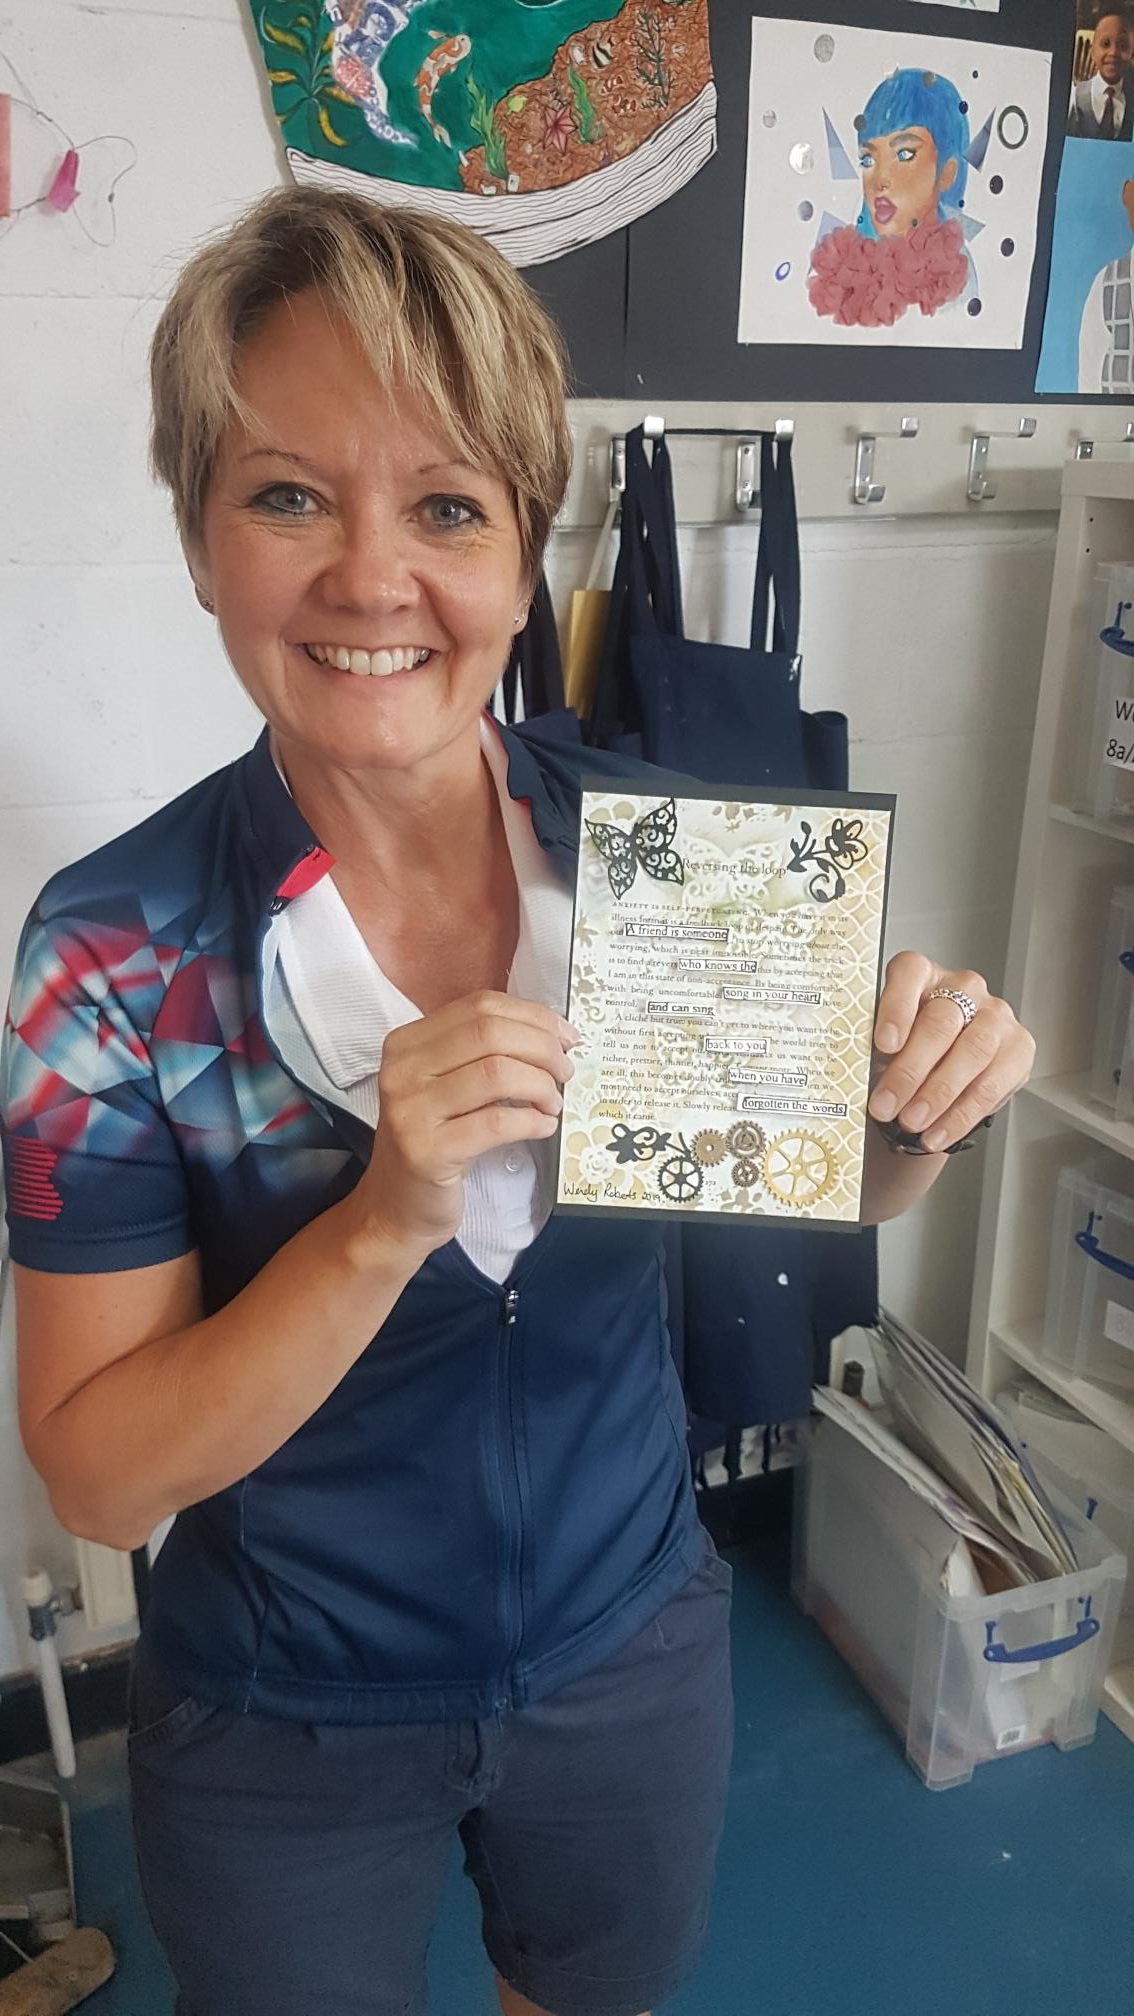 Reversing the loop
ANXIETY IS SELF-PERPETUATING. When you have it in its
illness format is a feedback loop of despair. The only way
out A friend is someone to stop worrying about the
worrying, which is near impossible. Sometimes the trick
is to find a revers who knows the this by accepting that
I am in this state of non-acceptance. By being comfortable
with being uncomfortable song in your heart have
control. and can sing
A cliché but true: you can't get to where you want to be
without first accepting back to you he world tries to
tell us not to accept us want to be
richer, prettier, thinner, happier When we
are ill, this becomes doubly when you have en we
most need to accept ourselves, acce
in order to release it. Slowly relea forgotten the words
which it came.
172
Wendy Roberts 2019.
8a/